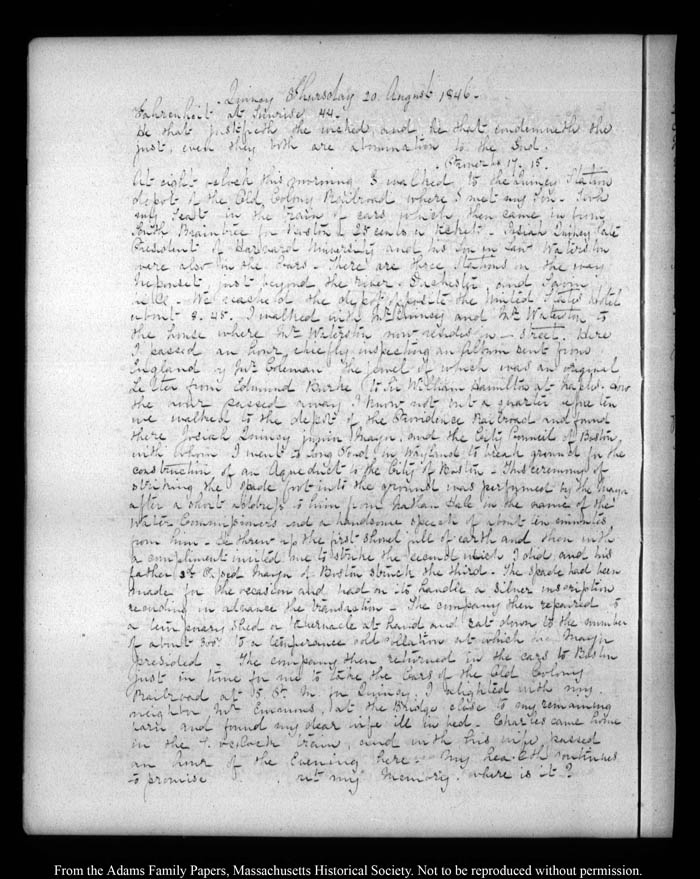 Quincy Thursday 20. August 1846.
Fahrenheit at Sunrise 44.
He that justifieth the wicked, and he that condemneth the
just, even they both are abomination to the Lord.
Proverbs 17. 15.
At eight o'clock this morning I walked to the Quincy Station
depot of the Old Colony Railroad where I met my Son. Took
my seat in the train of cars which then came in from
South Braintree for Boston 25 cents a ticket. Josiah Quincy late
President of Harvard University and his Son in Law Waterston
were also in the Cars. There are three Stations on the way
Neponset just beyond the river. Dorchester, and Savin
hill. We reached the depot opposite the United States Hotel
about 8. 45. I walked with Mr Quincy and Mr Waterston to
the house where Mr Waterston now resides in — Street. Here
I passed an hour chiefly inspecting an Album sent from
England by Mr Coleman the jewel of which was an original
Letter from Edmund Burke to Sir William Hamilton at Naples. How
the hour passed away I know not but a quarter before ten
we walked to the depot of the Providence Railroad and found
there Josiah Quincy junior Mayor, and the City Council of Boston,
with whom I went to Long Pond in Wayland to break ground for the
construction of an Aqueduct to the City of Boston. This ceremony of
striking the spade foot into the ground was performed by the Mayor
after a short address to him from Nathan Hale in the name of the
Water Commissioners and a handsome speech of about ten minutes
from him. He threw up the first shovel full of earth and then with
a compliment invited me to strike the second which I did, and his
father 3d Mayor of Boston struck the third. The spade had been
made for the occasion and had on its handle a silver inscription
recording in advance the transaction. The company then repaired to
a temporary shed or tabernacle at hand and sat down to the number
of about 300 to a temperance cold collation at which the Mayor
presided. The company then returned in the cars to Boston
just in time for me to take the Cars of the Old Colony
Railroad at 5 P. M. for Quincy. I alighted with my
neighbor Mr at the Bridge close to my remaining
barn and found my dear wife ill in bed. Charles came home
in the 7. o'clock train, and with his wife passed
an hour of the Evening here. My health continues
to promise but my Memory. where is it?
From the Adams Family Papers, Massachusetts Historical Society. Not to be reproduced without permission.